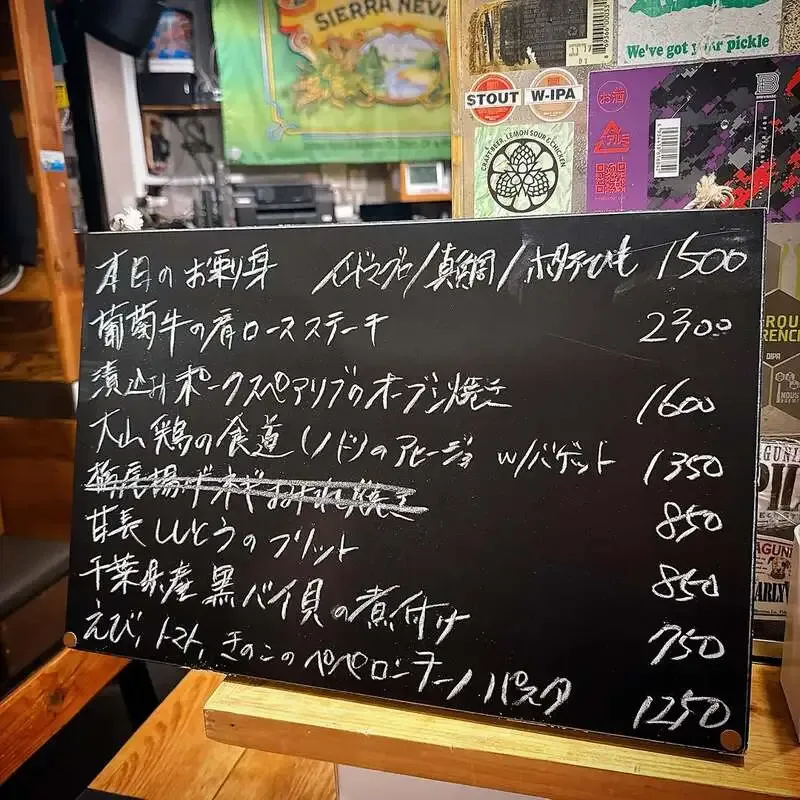 SIERRA NEVA
We've got your pickle
STOUT
W-IPA
お酒
CRAFT BEER, LEMON SOUR & CHICKEN
本日のお刺身 インドマグロ/真鯛/ホタテひも 1500
葡萄牛の肩ロースステーキ 2300
漬込みポークスペアリブのオーブン焼き 1600
大山鶏の食道(ノド)のアヒージョ w/バゲット 1350
栃尾揚げネギおかか焼き 850
甘長ししとうのフリット 850
千葉県産黒バイ貝の煮付け 750
えび、トマト、きのこのペペロンチーノパスタ 1250
DIPA